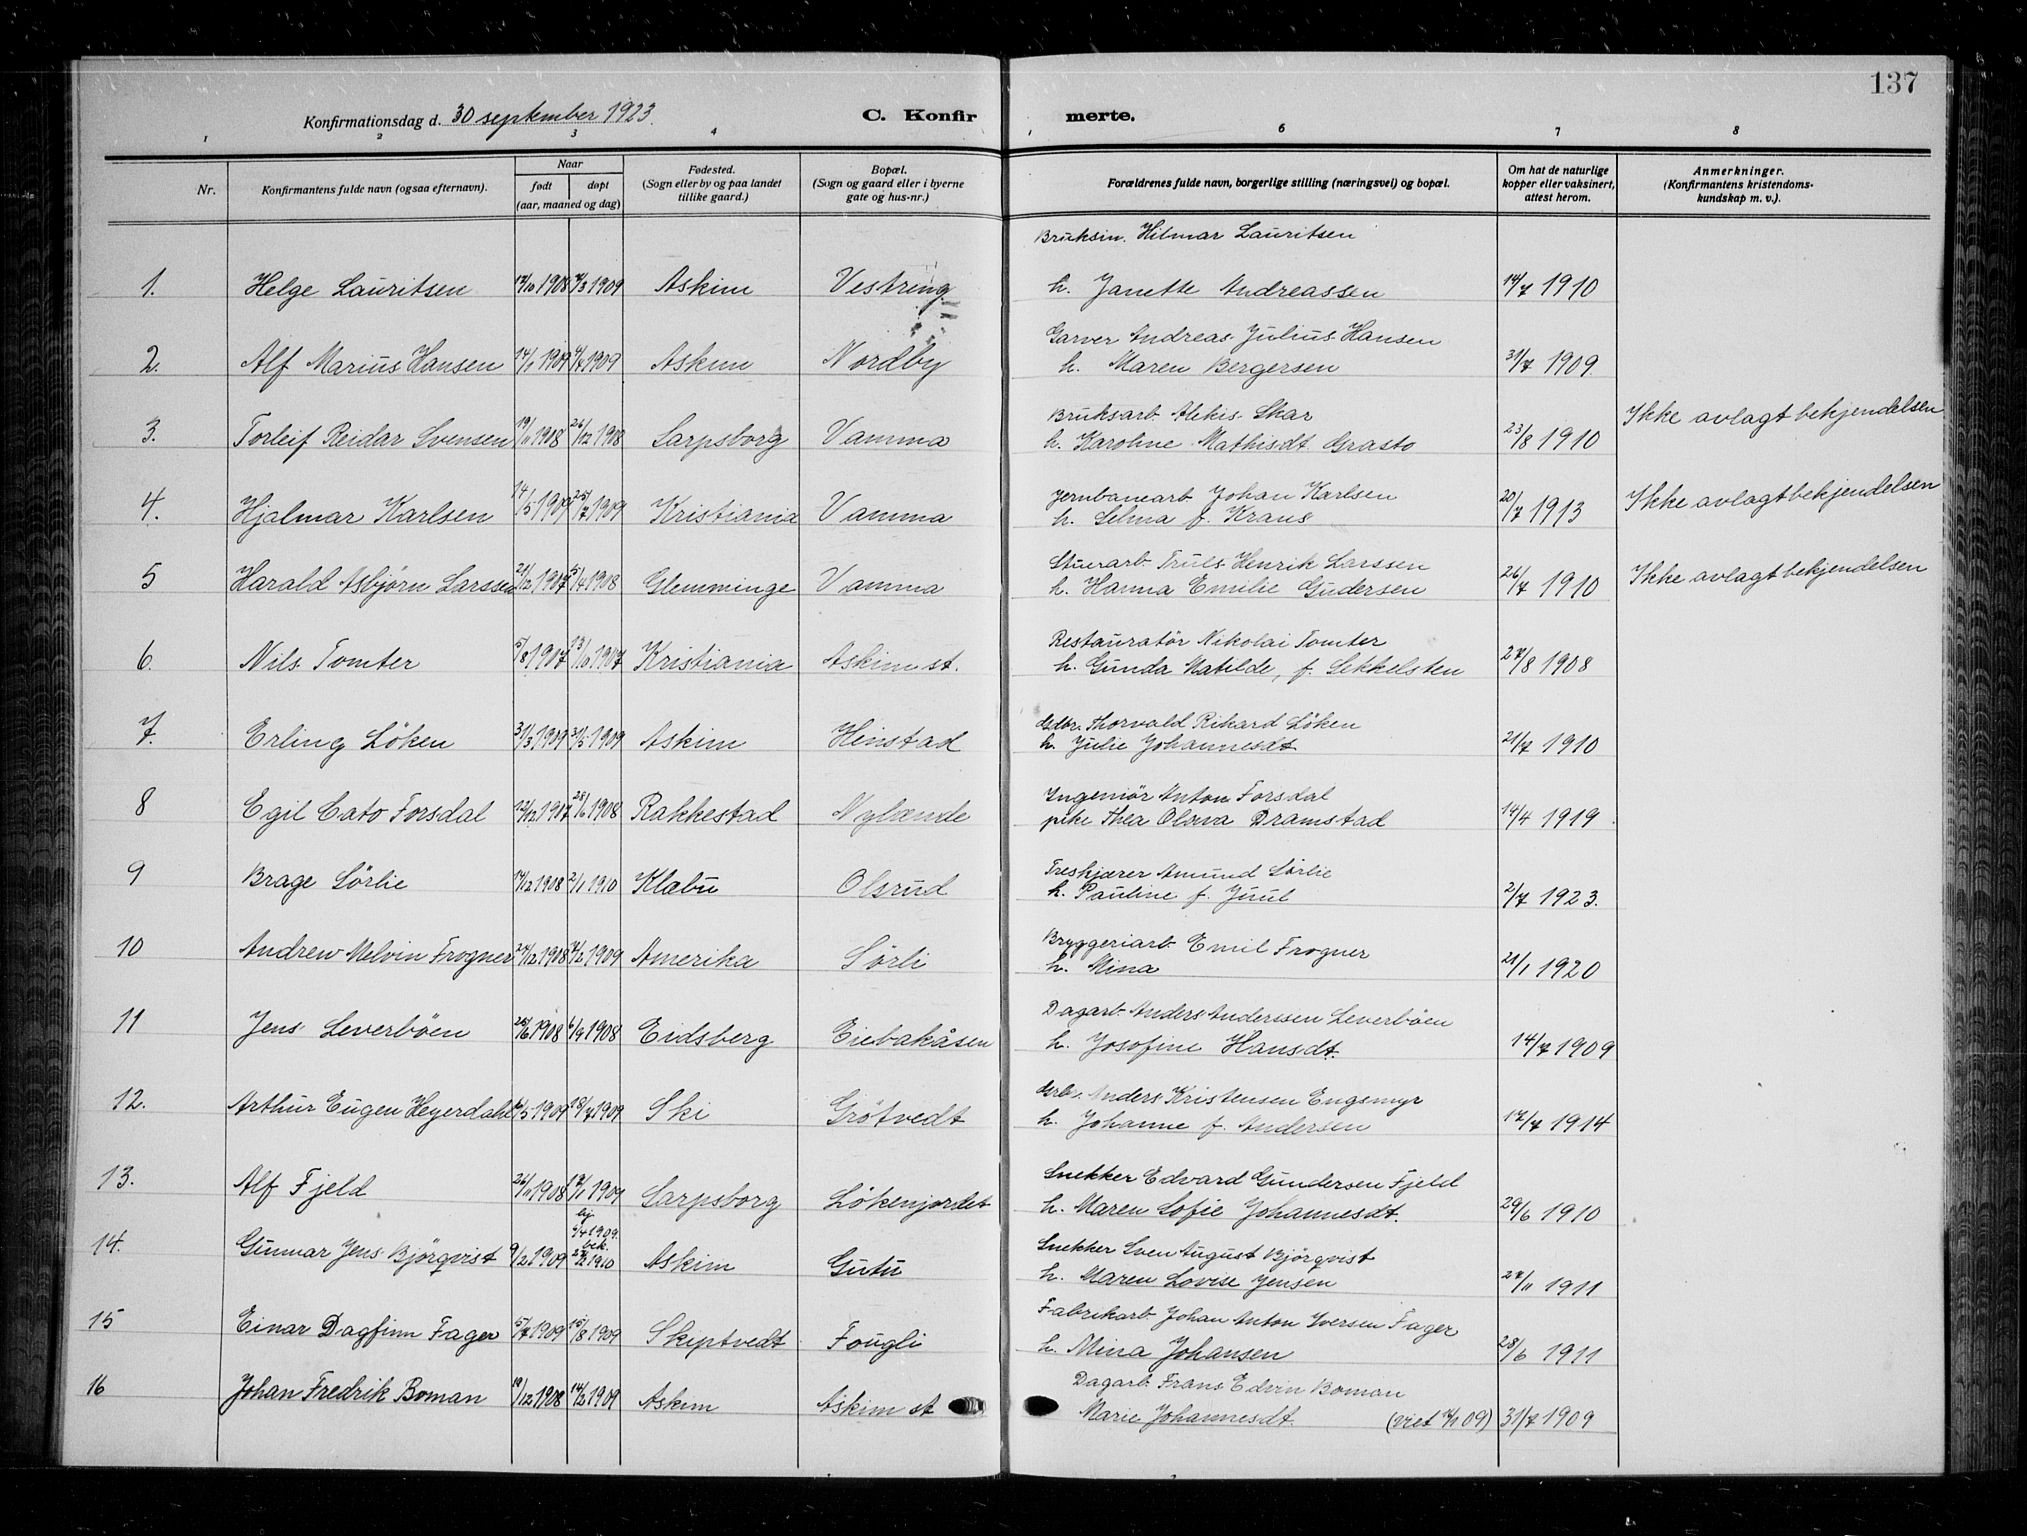 137
Konfirmationsdag d. 30 september 1923.
C. Konfirmerte.
1 2 3 4 6 7 8
Nr.
Konfirmantens fulde navn (ogsaa efternavn).
Naar
født døpt
(aar, maaned og dag)
Fødested.
(Sogn eller by og paa landet
tillike gaard.)
Bopæl.
(Sogn og gaard eller i byerne
gate og hus-nr.)
Forældrenes fulde navn, borgerlige stilling (næringsvei) og bopæl.
Om hat de naturlige
kopper eller vaksinert,
attest herom.
Anmerkninger.
(Konfirmantens kristendoms-
kundskap m. v.).
Bruksin. Hilmar Lauritsen
1. Helge Lauritsen 1908 1909 Askim Vestring h. Janette Andreassen 14/7 1910
Garver Andreas Julius Hansen
2. Alf Marius Hansen 14/1 1909 4/4 1909 Askim Nordby h. Maren Bergersen 31/7 1909
Bruksarb. Aleksis Skar Ikke avlagt bekjendelsen
3. Torleif Reidar Svensen 19/11 1908 26/12 1908 Sarpsborg Vamma h. Karoline Mathisdt. Grasto 23/8 1910
Jernbanearb. Johan Karlsen Ikke avlagt bekjendelsen
4. Hjalmar Karlsen 14/5 1909 25/7 1909 Kristiania Vamma h. Selma f. Kraus 20/7 1913
Truls Henrik Larssen Ikke avlagt bekjendelsen
5 Harald Asbjørn Larssen 21/12 1907 5/4 1908 Glemminge Vamma h. Hanna Emilie Gudersen 26/7 1910
Restauratör Nikolai Tomter
6. Nils Tomter 5/8 1907 13/10 1907 Kristiania Askim st. h. Gunda Matilde, f. Sekkelsten 27/8 1908
Thorvald Rikard Löken
7. Erling Löken 31/3 1909 31/5 1909 Askim Henstad h. Julie Johannesdt. 21/7 1910
Ingeniör Anton Forsdal
8 Egil Cato Forsdal 1907 28/6 1908 Rakkestad Nylænde pike Thea Olava Dramstad 14/4 1919
Treskjærer Amund Sörlie
9 Brage Sörlie 1908 2/1 1910 Klabu Olsrud h. Pauline f. Juul 2/7 1923.
Bryggeriarb. Emil Frogner
10 Andrew Melvin Frogner 24/12 1908 1909 Amerika Sörli h. Mina 21/1 1920
Dagarb. Anders Anderssen Leverböen
11 Jens Leverböen 1908 6/9 1908 Eidsberg Eiebakåsen h. Josofine Hansdt. 14/7 1909
Anders Kristensen Engsmyr
12. Arthur Eugen Heyerdahl 1909 18/7 1909 Ski Grötvedt h. Johanne f. Andersen 17/7 1914
Snekker Edvard Gundersen Fjeld
13. Alf Fjeld 26/11 1908 17/1 1909 Sarpsborg Lökenjordet h. Maren Sofie Johannesdt. 29/6 1910
hj. 4/4 1909. Snekker Sven August Björqvist
bek.
14. Gunnar Jens Björqvist 9/2 1909 1910 Askim Gutu h. Maren Lovise Jensen 27/11 1911
Fabrikarb. Johan Anton Iversen Fager
15 Einar Dagfinn Fager 5/7 1909 15/8 1909 Skiptvedt Fougli h. Mina Johansen 28/6 1911
Dagarb. Frans Edvin Boman
16 Johan Fredrik Boman 19/12 1908 14/2 1909 Askim Askim st Marie Johannesdt. (viet 09) 31/7 1909